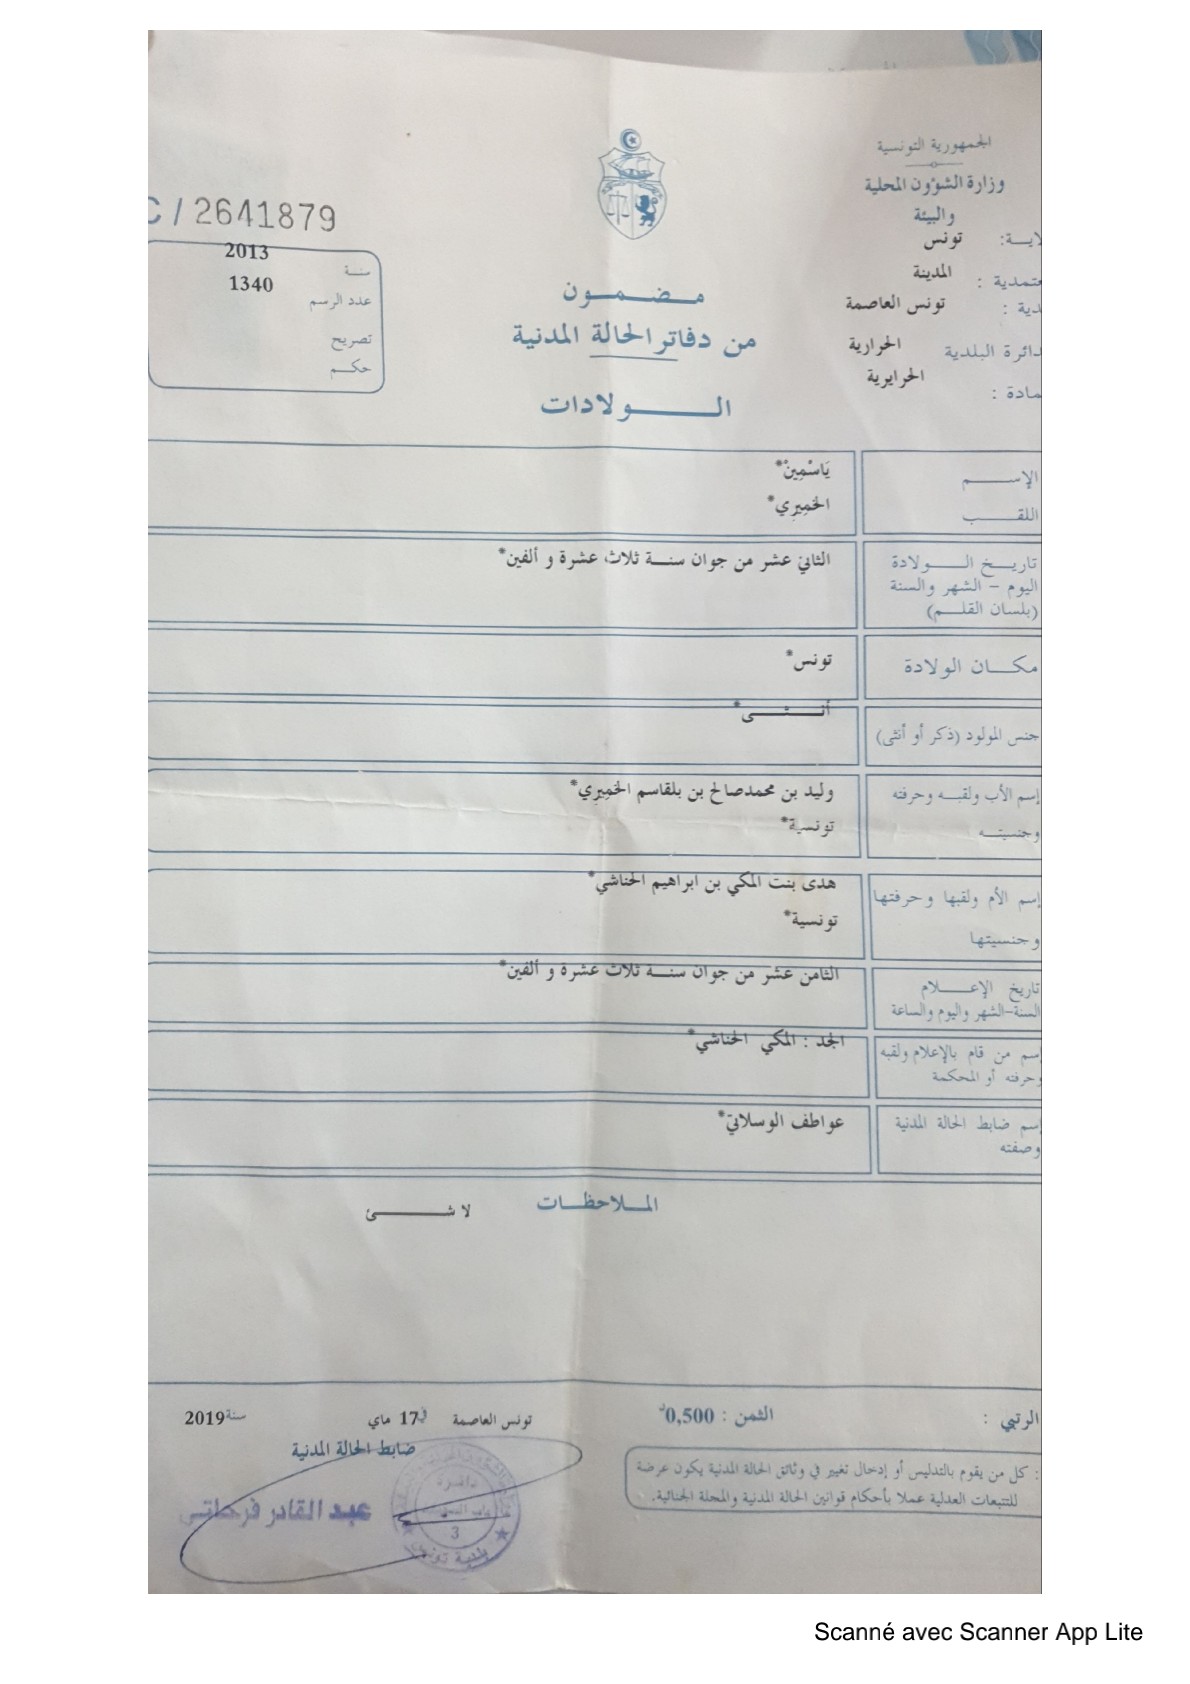 الجمهورية التونسية
وزارة الشؤون المحلية
والبيئة
لايــة: تونس
عتمدية : المدينة
دية : تونس العاصمة
دائرة البلدية الحرارية
مادة : الحرايرية
C / 2641879
سنـة 2013
عدد الرسم 1340
تصريح
حكـم
مـضـمـون
من دفاتر الحالة المدنية
الــولادات
الإســـم يَاسْمِينْ*
اللقـــب الخمِيرِي*
تاريـخ الــولادة الثاني عشر من جوان سنـة ثلاث عشرة و ألفين*
اليوم – الشهر والسنة
(بلسان القلـم)
مكـان الولادة تونس*
جنس المولود (ذكر أو أنثى) أنــثــى*
إسم الأب ولقبـه وحرفته وليد بن محمدصالح بن بلقاسم الخمِيرِي*
وجنسيتـه تونسية*
إسم الأم ولقبها وحرفتها هدى بنت المكي بن ابراهيم الحناشي*
وجنسيتها تونسية*
تاريخ الإعـلام الثامن عشر من جوان سنـة ثلاث عشرة و ألفين*
السنة–الشهر واليوم والساعة
إسم من قام بالإعلام ولقبه الجد : المكي الحناشي*
وحرفته أو المحكمة
إسم ضابط الحالة المدنية عواطف الوسلاتي*
وصفته
المـلاحظـات
لا شـــئ
الرتبي : الثمن : 0,500د
تونس العاصمة في 17 ماي سنة 2019
ضابط الحالة المدنية
: كل من يقوم بالتدليس أو إدخال تغيير في وثائق الحالة المدنية يكون عرضة
للتتبعات العدلية عملا بأحكام قوانين الحالة المدنية والمجلة الجنائية.
عبد القادر فرحاتي
دائرة
3
بلدية تونس
Scanné avec Scanner App Lite